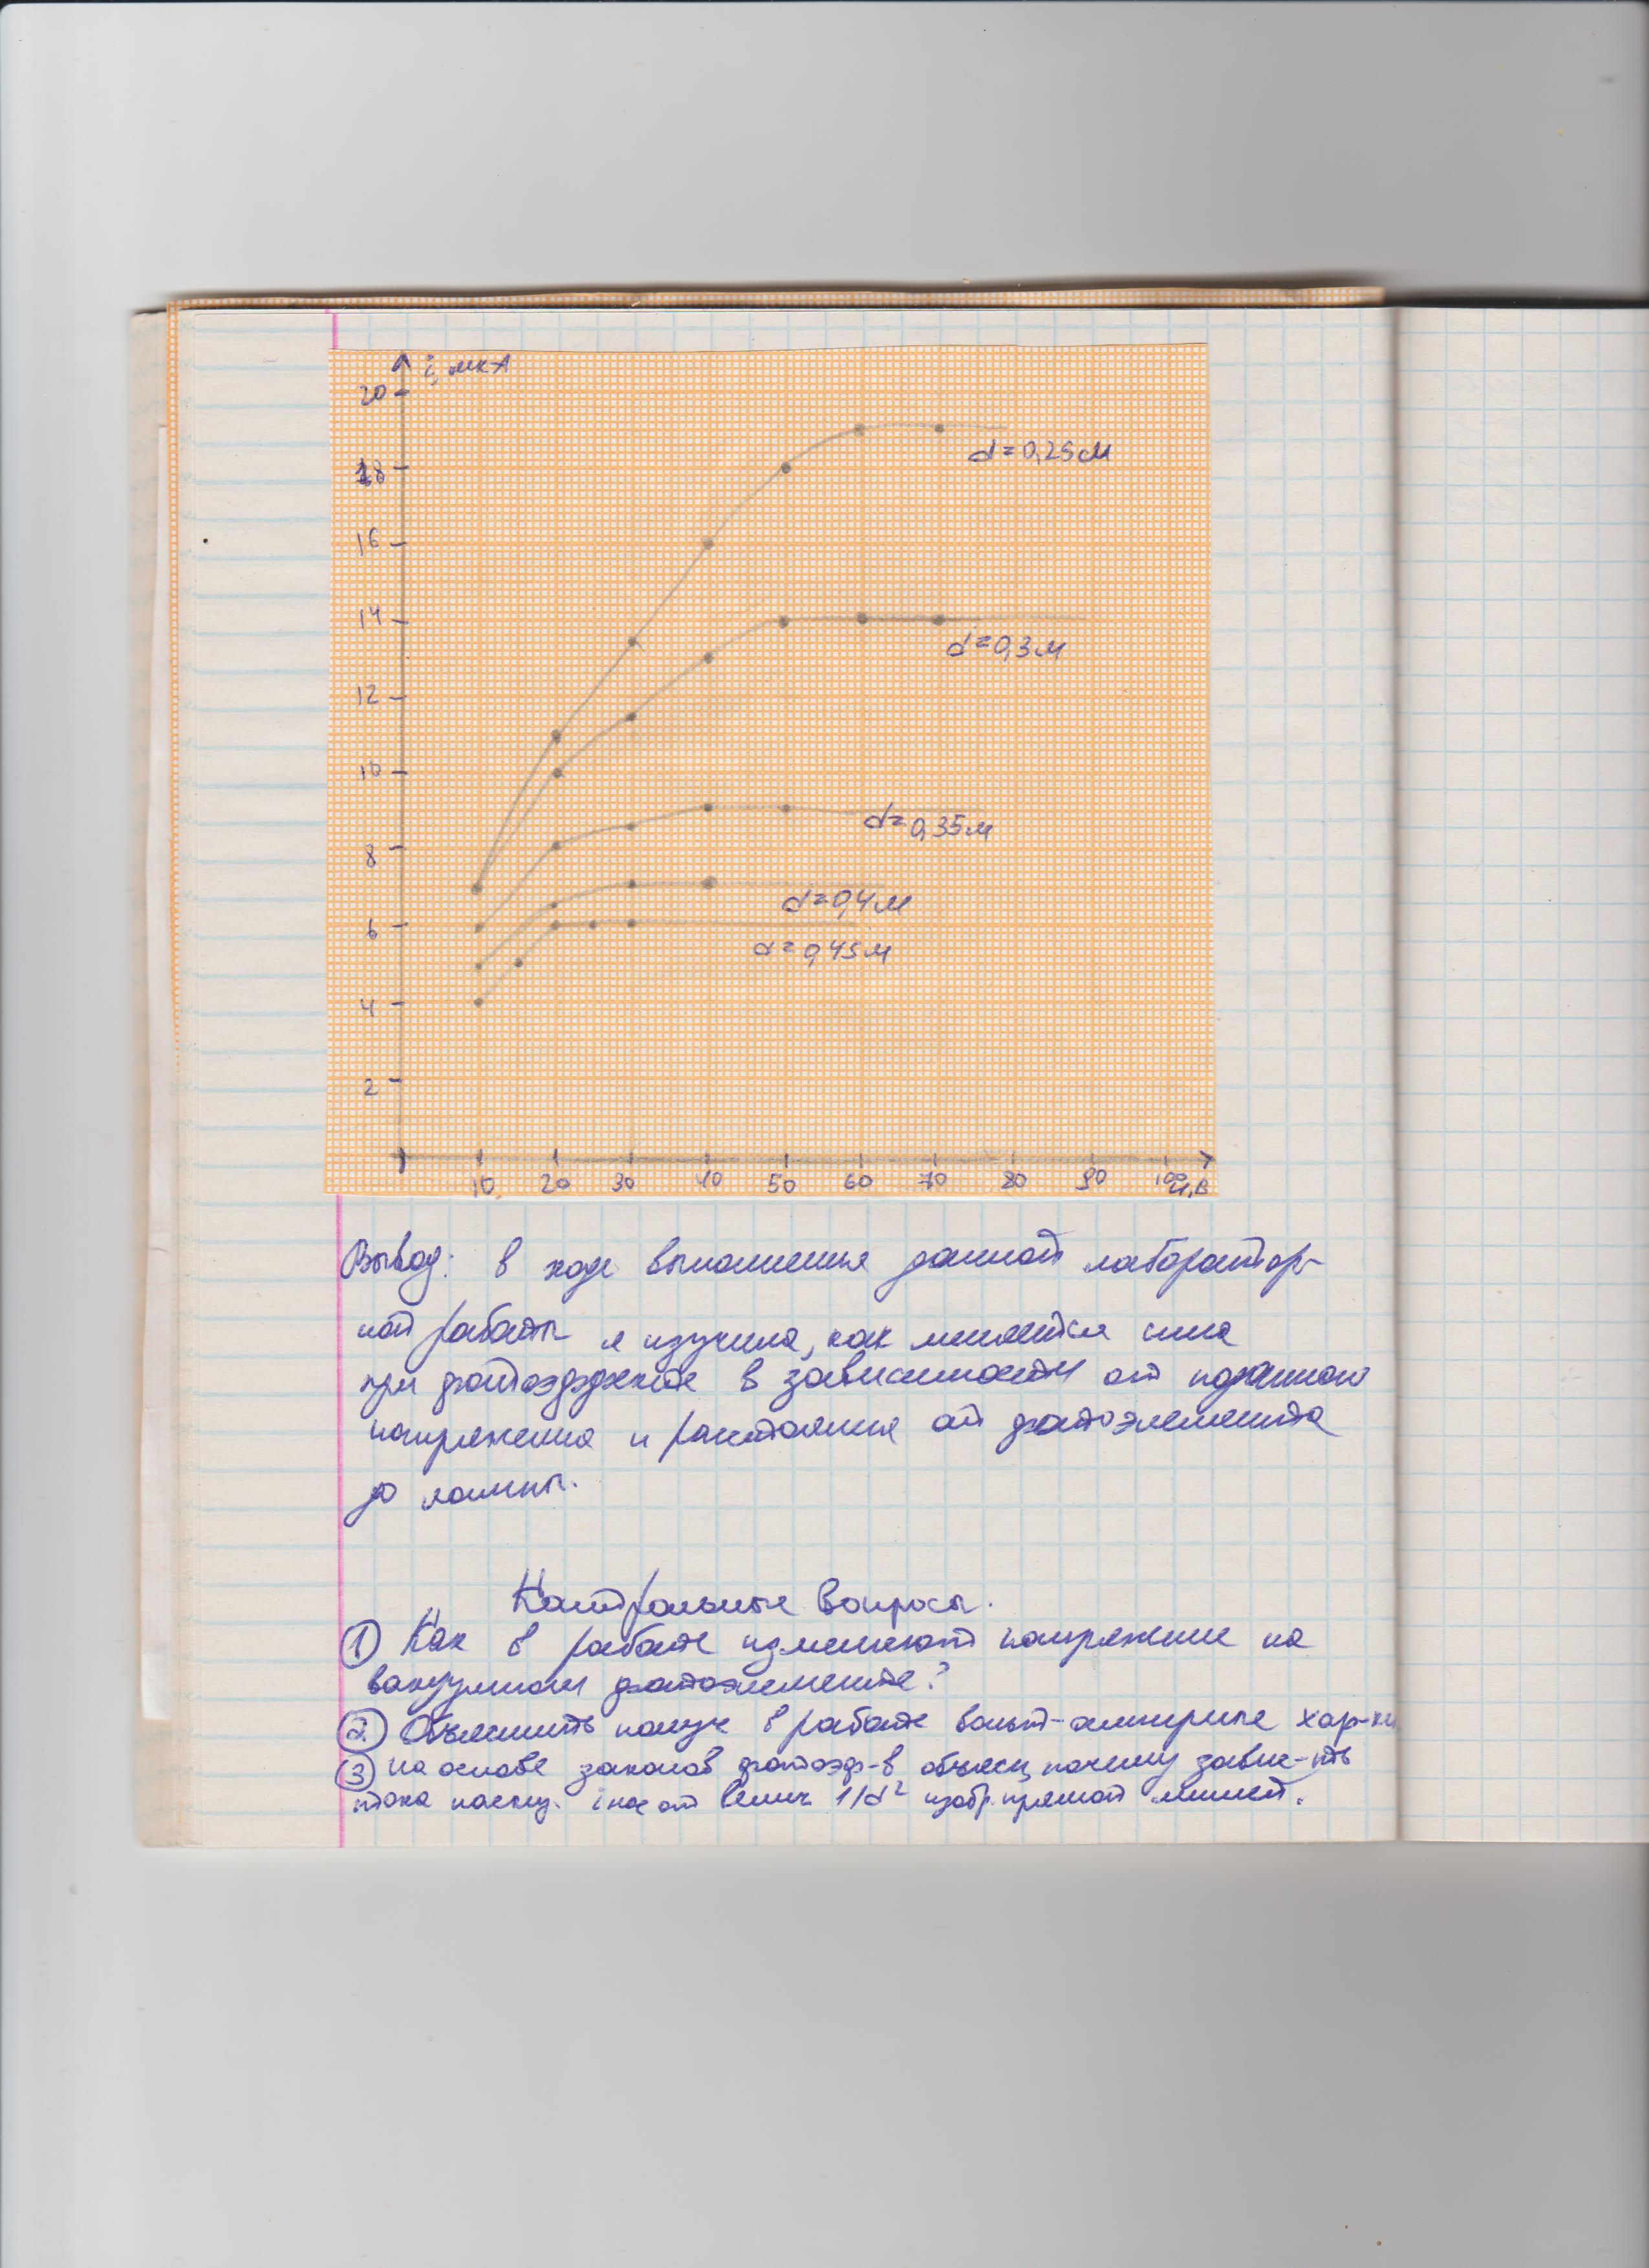 i, мкА
20
18
16
14
12
10
8
6
4
2
d=0,25м
d=0,3м
d=0,35м
d=0,4м
d=0,45м
10 20 30 40 50 60 70 80 90 100
U,В
Вывод: в ходе выполнения данной лаборатор-
ной работы я изучила, как меняется сила
при фотоэффекте в зависимости от поданного
напряжения и расстояния от фотоэлемента
до лампы.
Контрольные вопросы.
1 Как в работе изменяют напряжение на
вакуумном фотоэлементе?
2. Объяснить получ в работе вольт-амперные хар-ки
3 на основе законов фотоэф-в объясн, почему завис-ть
тока насыщ. iнас от велич 1/d² изобр. прямой линией.